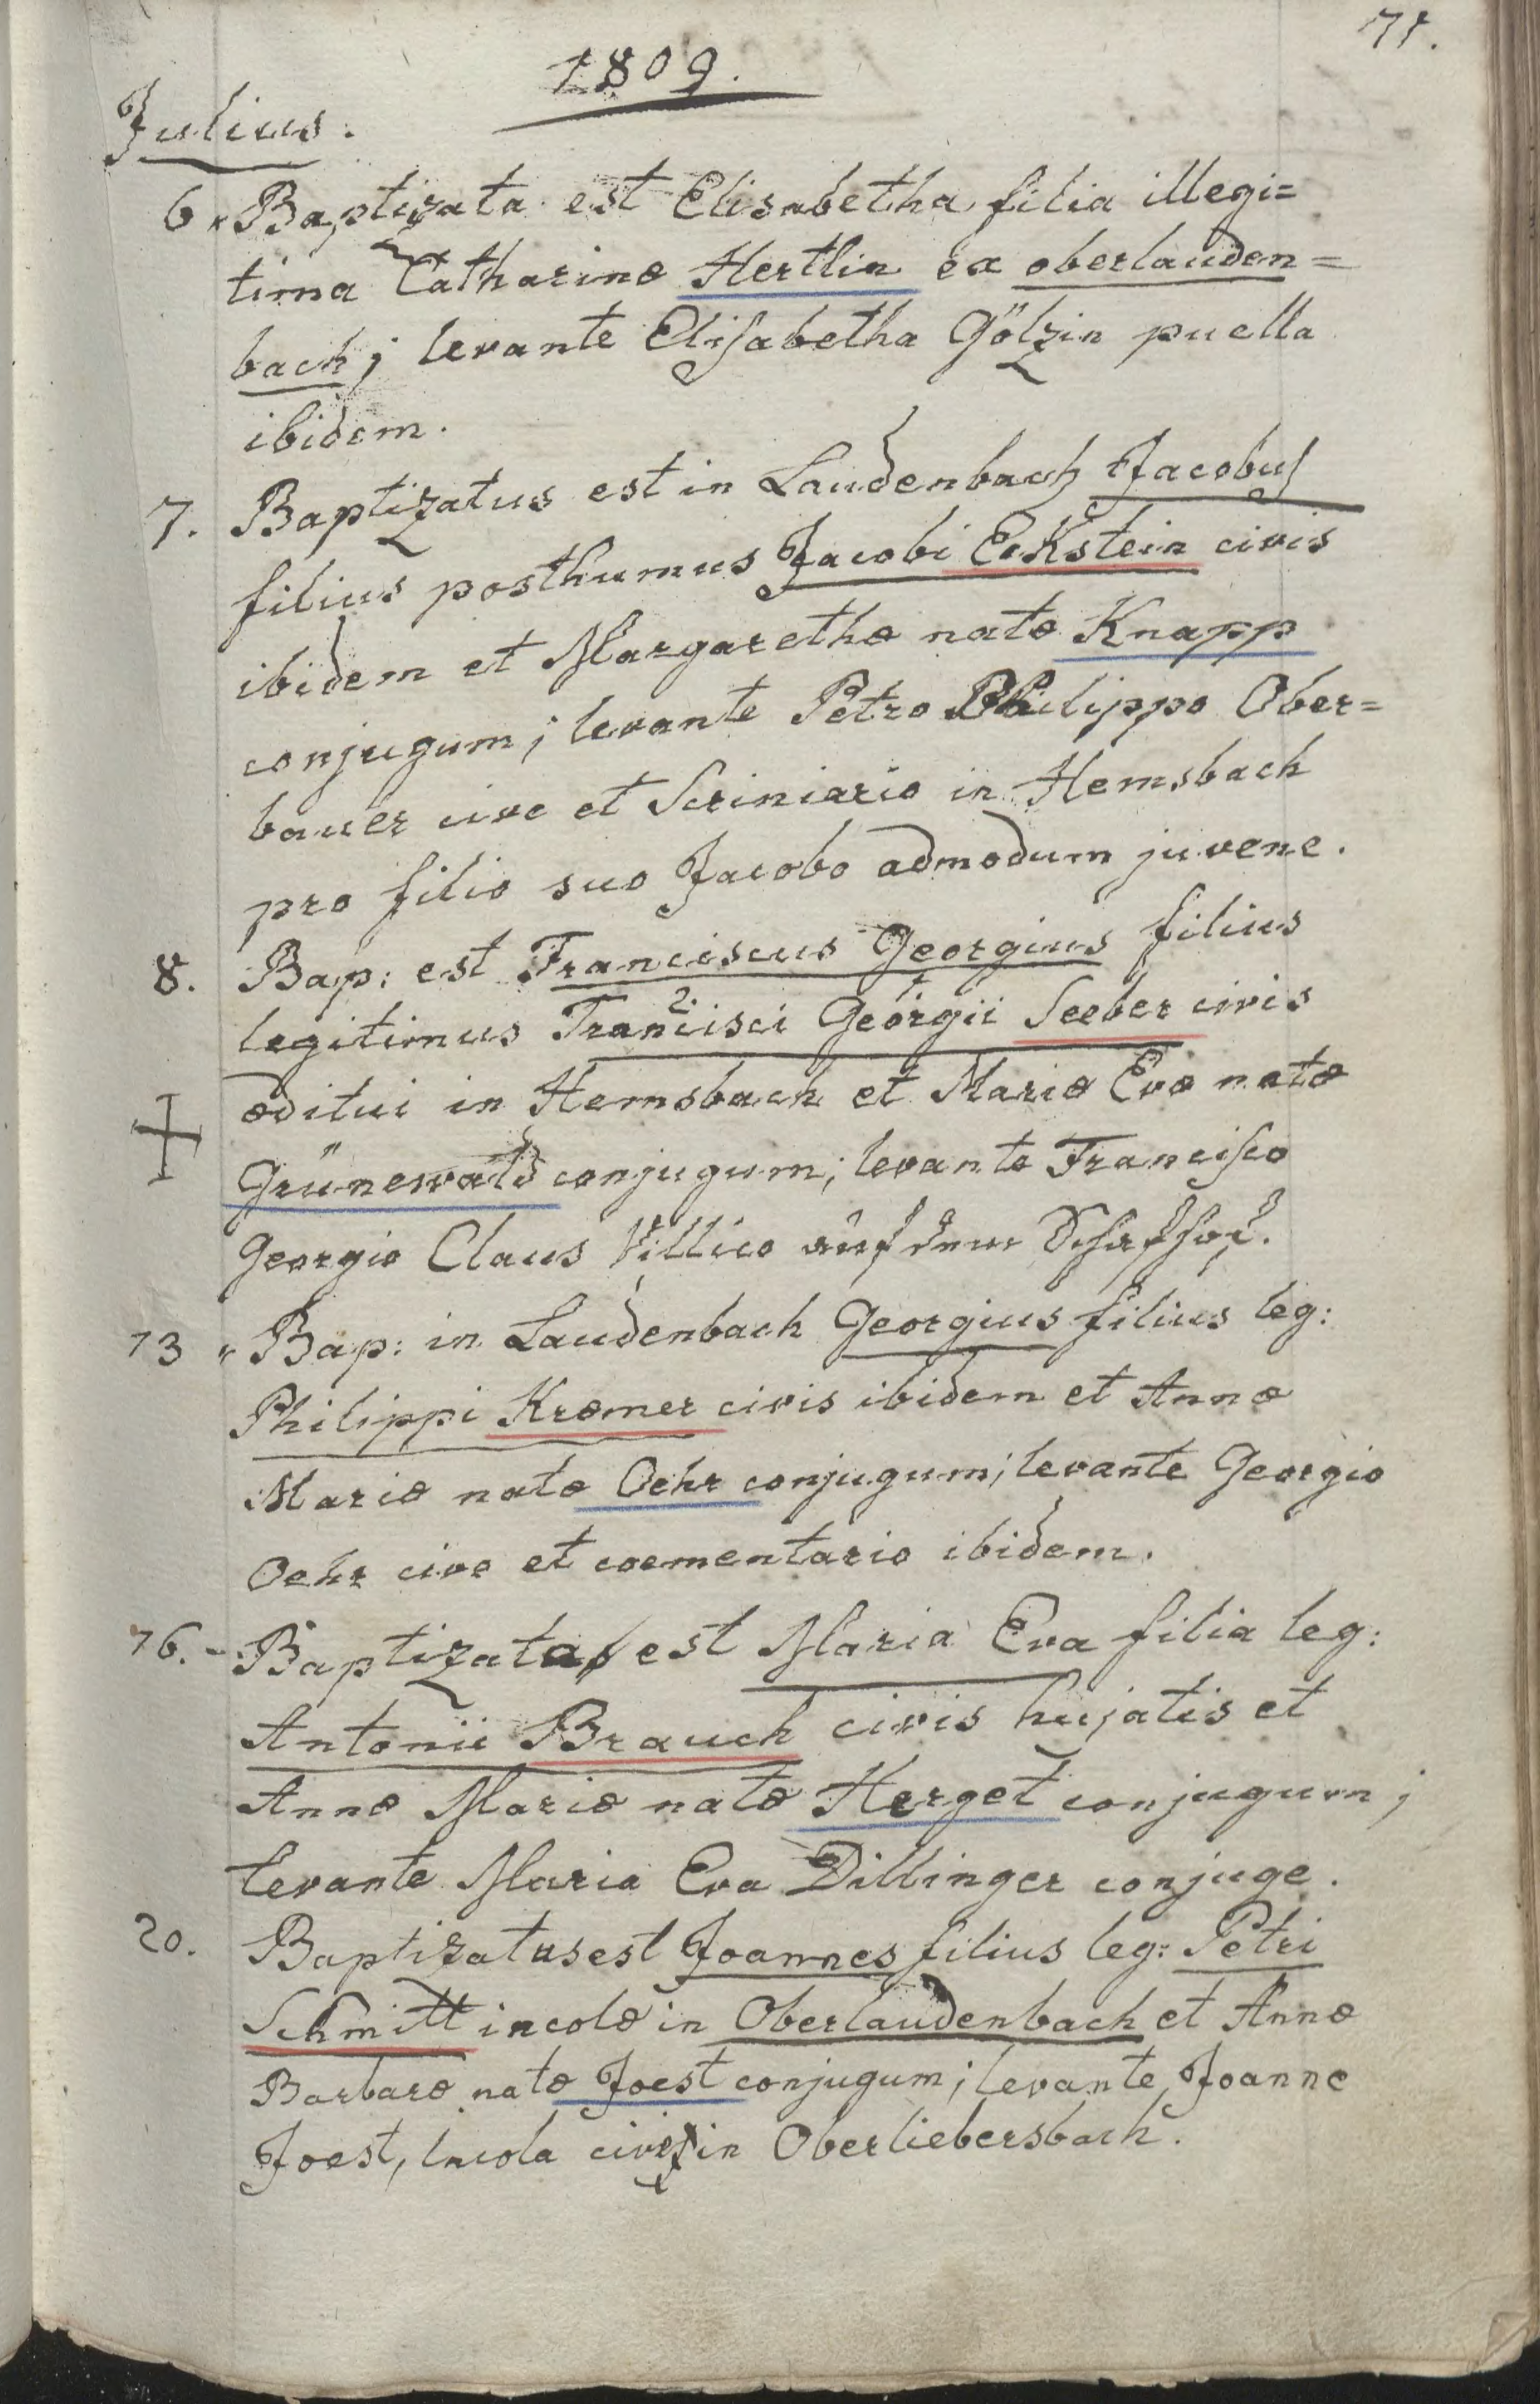 71.
1809.
Julius.
6. Baptizata est Elisabetha filia illegi=
tima Catharinæ Hertlin ex oberlauden=
bach; levante Elisabetha Gölzin puella
ibidem.
7. Baptizatus est in Laudenbach Jacobus
filius posthumus Jacobi Eckstein civis
ibidem et Margarethæ natæ Knapp
conjugum; levante Petro Philippo Ober=
bauer cive et Scriniario in Hemsbach
pro filio suo Jacobo admodum juvene.
8. Bap: est Franciscus Georgius filius
legitimus Francisci Georgii Seeber civis
2. 1
æditui in Hemsbach et Mariæ Evæ natæ
Grünewald conjugum; levante Francisco
Georgio Claus Villico auf dem Schafhof.
13 Bap: in Laudenbach Georgius filius leg:
Philippi Kræmer civis ibidem et Annæ
Mariæ natæ Oehr conjugum; levante Georgio
Oehr cive et coementario ibidem.
16. Baptizata est Maria Eva filia leg:
Antonii Brauch civis hujatis et
Annæ Mariæ natæ Herget conjugum;
levante Maria Eva Dillinger conjuge.
20. Baptizatus est Joannes filius leg: Petri
Schmitt incolæ in Oberlaudenbach et Annæ
Barbaræ natæ Joest conjugum; levante Joanne
Joest, incola in Oberliebersbach.